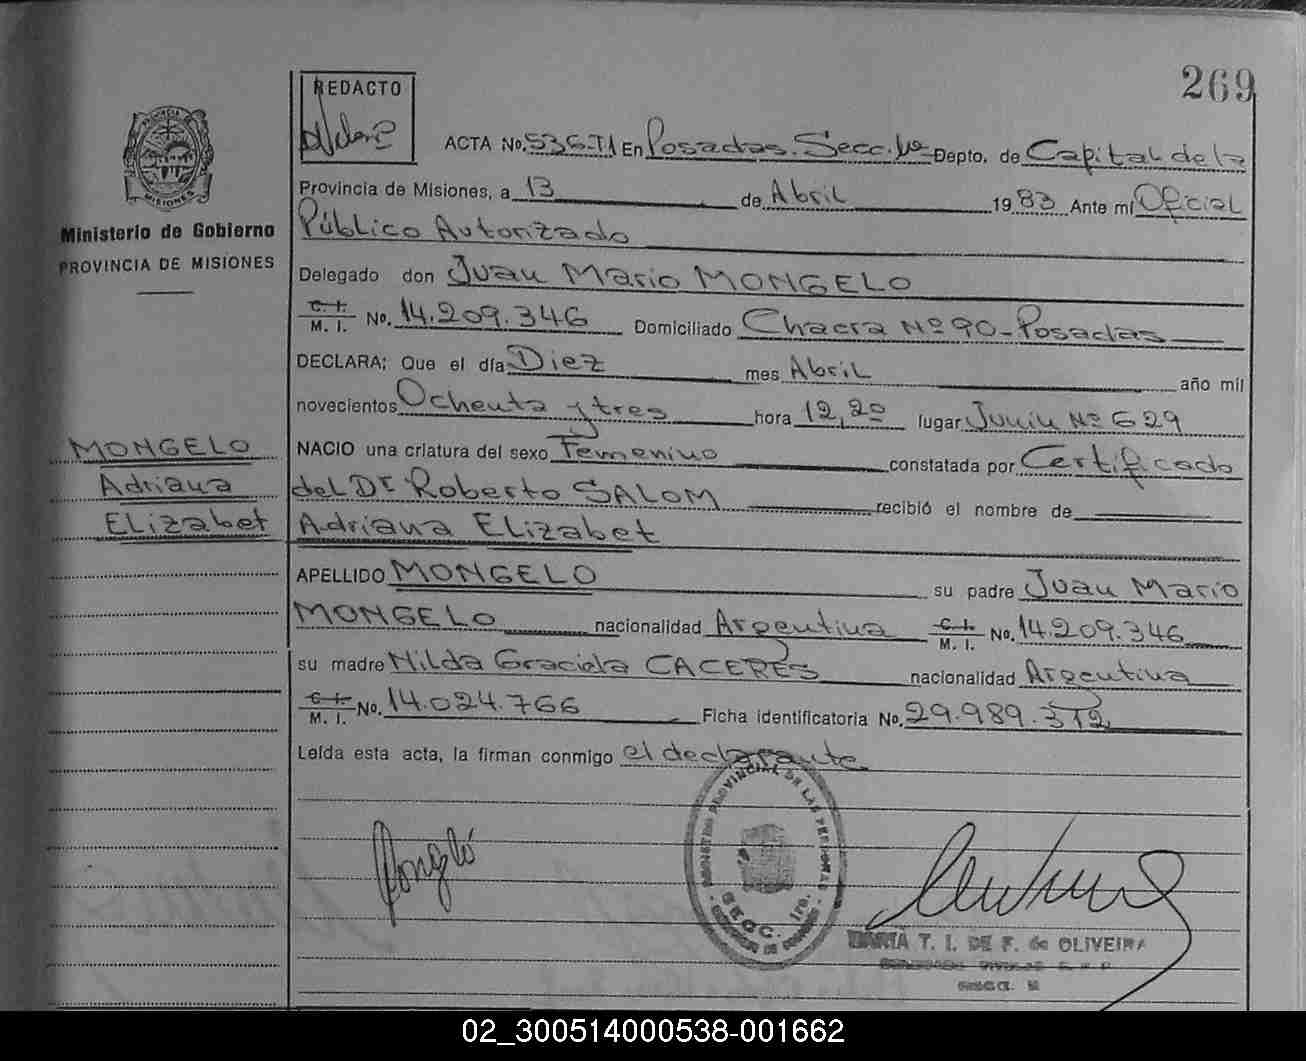 269
REDACTO
ACTA No. 536-T1 En Posadas. Secc. 1º Depto. de Capital de la
Provincia de Misiones, a 13 de Abril 1983 Ante mí Oficial
Público Autorizado
Ministerio de Gobierno
PROVINCIA DE MISIONES
Delegado don Juan Mario MONGELO
C. I.
M. I. No. 14.209.346 Domiciliado Chacra Nº 90 - Posadas
DECLARA: Que el día Diez mes Abril año mil
novecientos Ochenta y tres hora 12,20 lugar Junin Nº 629
NACIO una criatura del sexo Femenino constatada por Certificado
del Dr Roberto SALOM recibió el nombre de
Adriana Elizabet
MONGELO
Adriana
Elizabet
APELLIDO MONGELO su padre Juan Mario
MONGELO nacionalidad Argentina C. I. M. I. No. 14.209.346
su madre Nilda Graciela CACERES nacionalidad Argentina
C. I.
M. I. No. 14.024.766 Ficha identificatoria No. 29.989.312
Leída esta acta, la firman conmigo el declarante
REGISTRO PROVINCIAL DE LAS PERSONAS
SECC. 1ra.
MARIA T. I. DE F. de OLIVEIRA
02_300514000538-001662